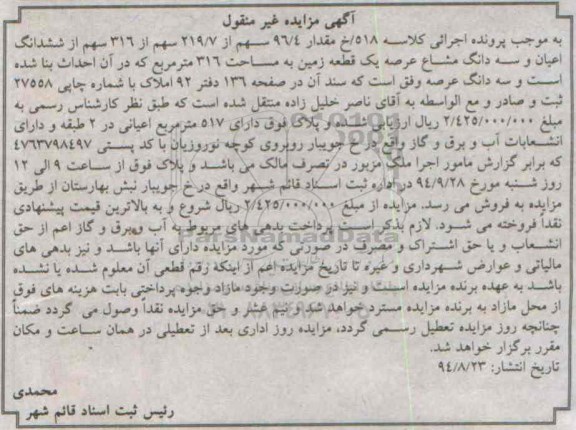 آگهی مزایده غیر منقول
به موجب پرونده اجرائی کلاسه ۵۱۸/خ مقدار ۹۶/۴ سهم از ۲۱۹/۷ سهم از ۳۱۶ سهم از ششدانگ
اعیان و سه دانگ مشاع عرصه یک قطعه زمین به مساحت ۳۱۶ مترمربع که در آن احداث بنا شده
است و سه دانگ عرصه وقفی است که سند آن در صفحه ۱۳۶ دفتر ۹۲ املاک با شماره چاپی ۲۷۵۵۸
ثبت و صادر و مع الواسطه به آقای ناصر خلیل زاده منتقل شده است که طبق نظر کارشناس رسمی به
مبلغ ۲/۴۲۵/۰۰۰/۰۰۰ ریال ارزیابی شده و پلاک فوق دارای ۵۱۷ مترمربع اعیانی در ۲ طبقه و دارای
انشعابات آب و برق و گاز واقع در خ جویبار روبروی کوچه نوروزیان با کد پستی ۴۷۶۳۷۹۸۴۹۷
که برابر گزارش مامور اجرا ملک مزبور در تصرف مالک می باشد و پلاک فوق از ساعت ۹ الی ۱۲
روز شنبه مورخ ۹۴/۹/۲۸ در اداره ثبت اسناد قائم شهر واقع در خ جویبار نبش بهارستان از طریق
مزایده به فروش می رسد. مزایده از مبلغ ۲/۴۲۵/۰۰۰/۰۰۰ ریال شروع و به بالاترین قیمت پیشنهادی
نقداً فروخته می شود. لازم بذکر است پرداخت بدهی های مربوط به آب و برق و گاز اعم از حق
انشعاب و یا حق اشتراک و مصرف در صورتی که مورد مزایده دارای آنها باشد و نیز بدهی های
مالیاتی و عوارض شهرداری و غیره تا تاریخ مزایده اعم از اینکه رقم قطعی آن معلوم شده یا نشده
باشد به عهده برنده مزایده است و نیز در صورت وجود مازاد وجوه پرداختی بابت هزینه های فوق
از محل مازاد به برنده مزایده مسترد خواهد شد و نیم عشر و حق مزایده نقداً وصول می گردد ضمناً
چنانچه روز مزایده تعطیل رسمی گردد، مزایده روز اداری بعد از تعطیلی در همان ساعت و مکان
مقرر برگزار خواهد شد.
تاریخ انتشار: ۹۴/۸/۲۳
محمدی
رئیس ثبت اسناد قائم شهر